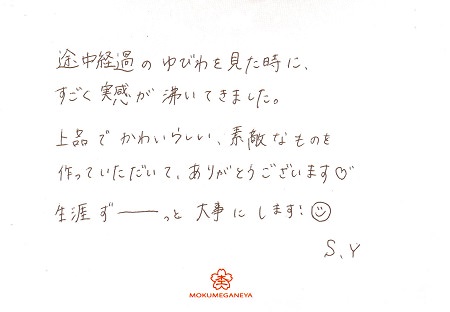 途中経過のゆびわを見た時に、
すごく実感が沸いてきました。
上品でかわいらしい、素敵なものを
作っていただいて、ありがとうございます♡
生涯ず――っと大事にします!☺
S.Y
MOKUMEGANEYA